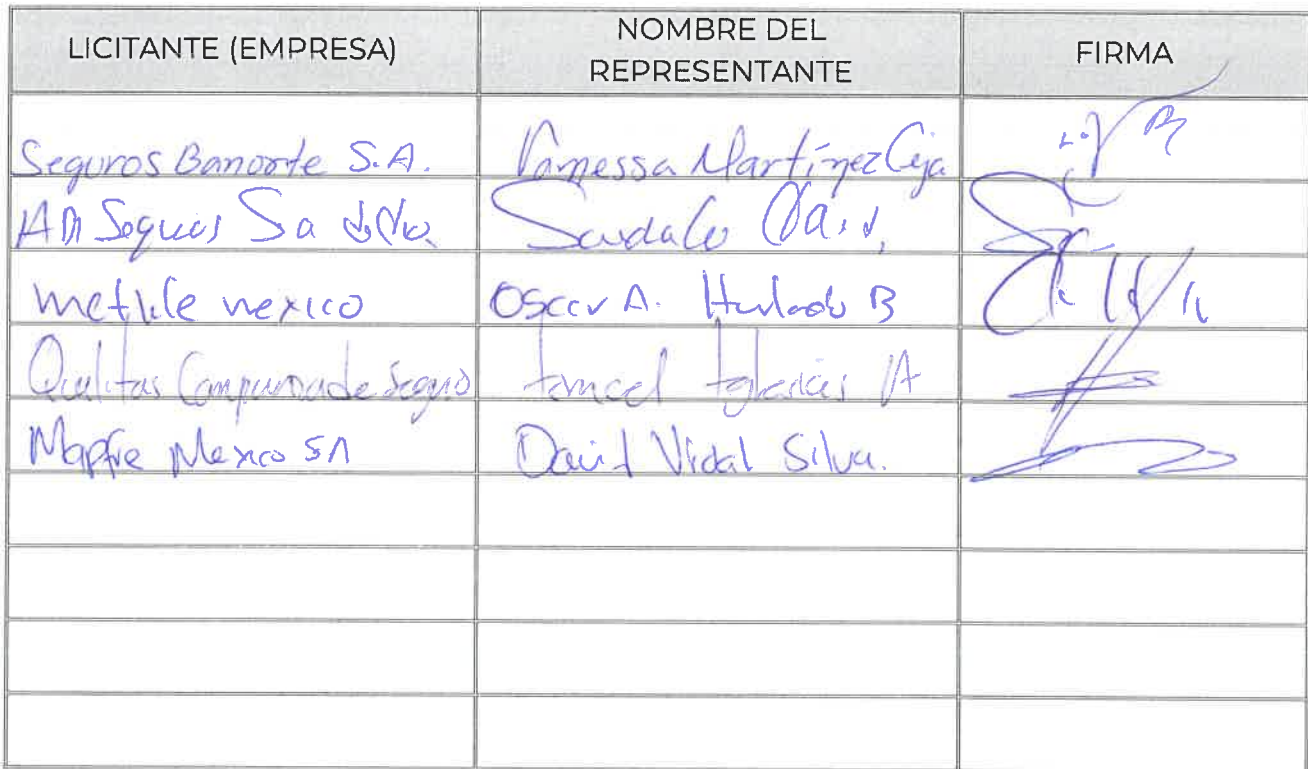 LICITANTE (EMPRESA)
NOMBRE DEL
REPRESENTANTE
FIRMA
Seguros Banorte S.A.
Vanessa Martínez Ceja
Seguros Sa
metlife mexico
Oscar A. Hurtado B
Qualitas Compania de Seguro
Iglesias A
Mapfre Mexico SA
David Vidal Silva.